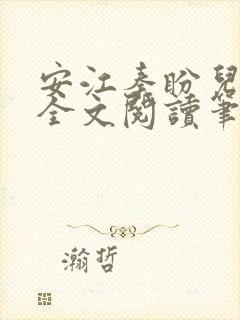 安江秦盼兒
全文閱讀筆
瀚哲